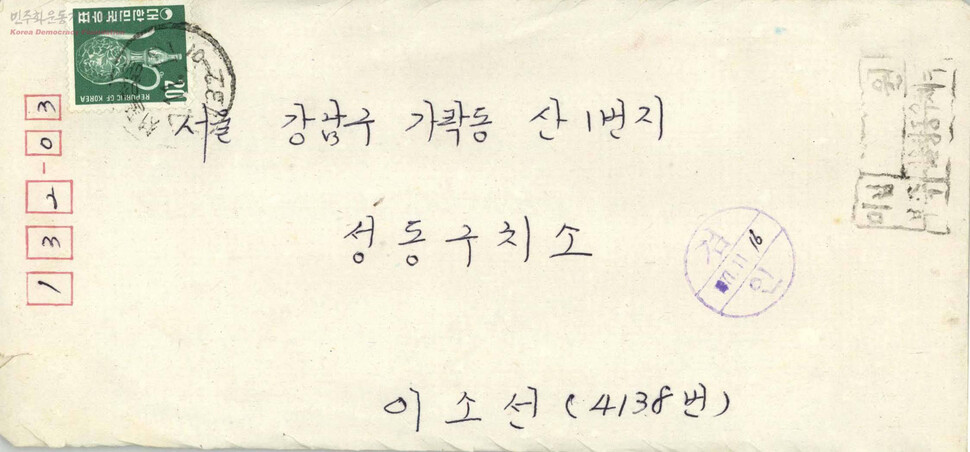 민주화운동
Korea Democracy
대한민국우표
20
REPUBLIC OF KOREA
서울 강남구 가락동 산1번지
성동구치소
검인
11 16
이소선(4138번)
132-03